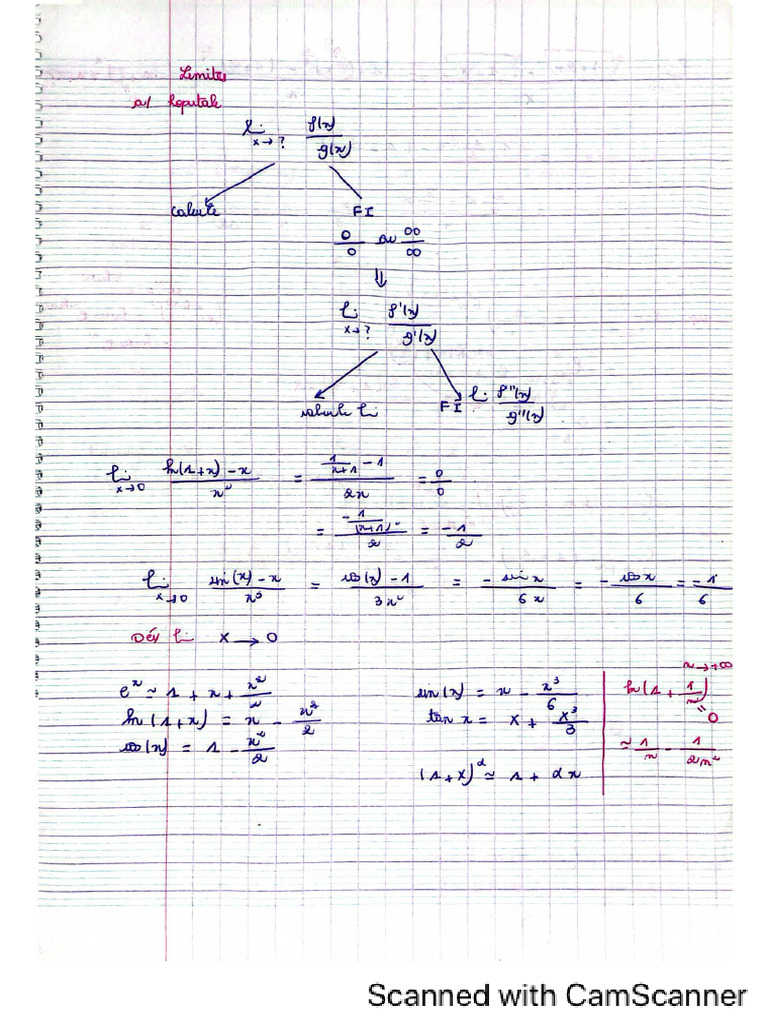 Limites
a/ hopitale
li x→? f(x)/g(x)
calcule FI
0/0 ou ∞/∞
⇓
li x→? f'(x)/g'(x)
calcule li FI li f''(x)/g''(x)
li x→0 (ln(1+x) - x)/x² = (1/(x+1) - 1)/2x = 0/0
= (-1/(x+1)²)/2 = -1/2
li x→0 (sin(x) - x)/x³ = (cos(x) - 1)/3x² = -sin x/6x = -cos x/6 = -1/6
Dév li x → 0
e^x ≃ 1 + x + x²/2
ln(1+x) = x - x²/2
cos(x) = 1 - x²/2
sin(x) = x - x³/6
tan x = x + x³/3
(1+x)^α ≃ 1 + αx
n→+∞
ln(1 + 1/n)
=
0
≃ 1/n - 1/2n²
Scanned with CamScanner